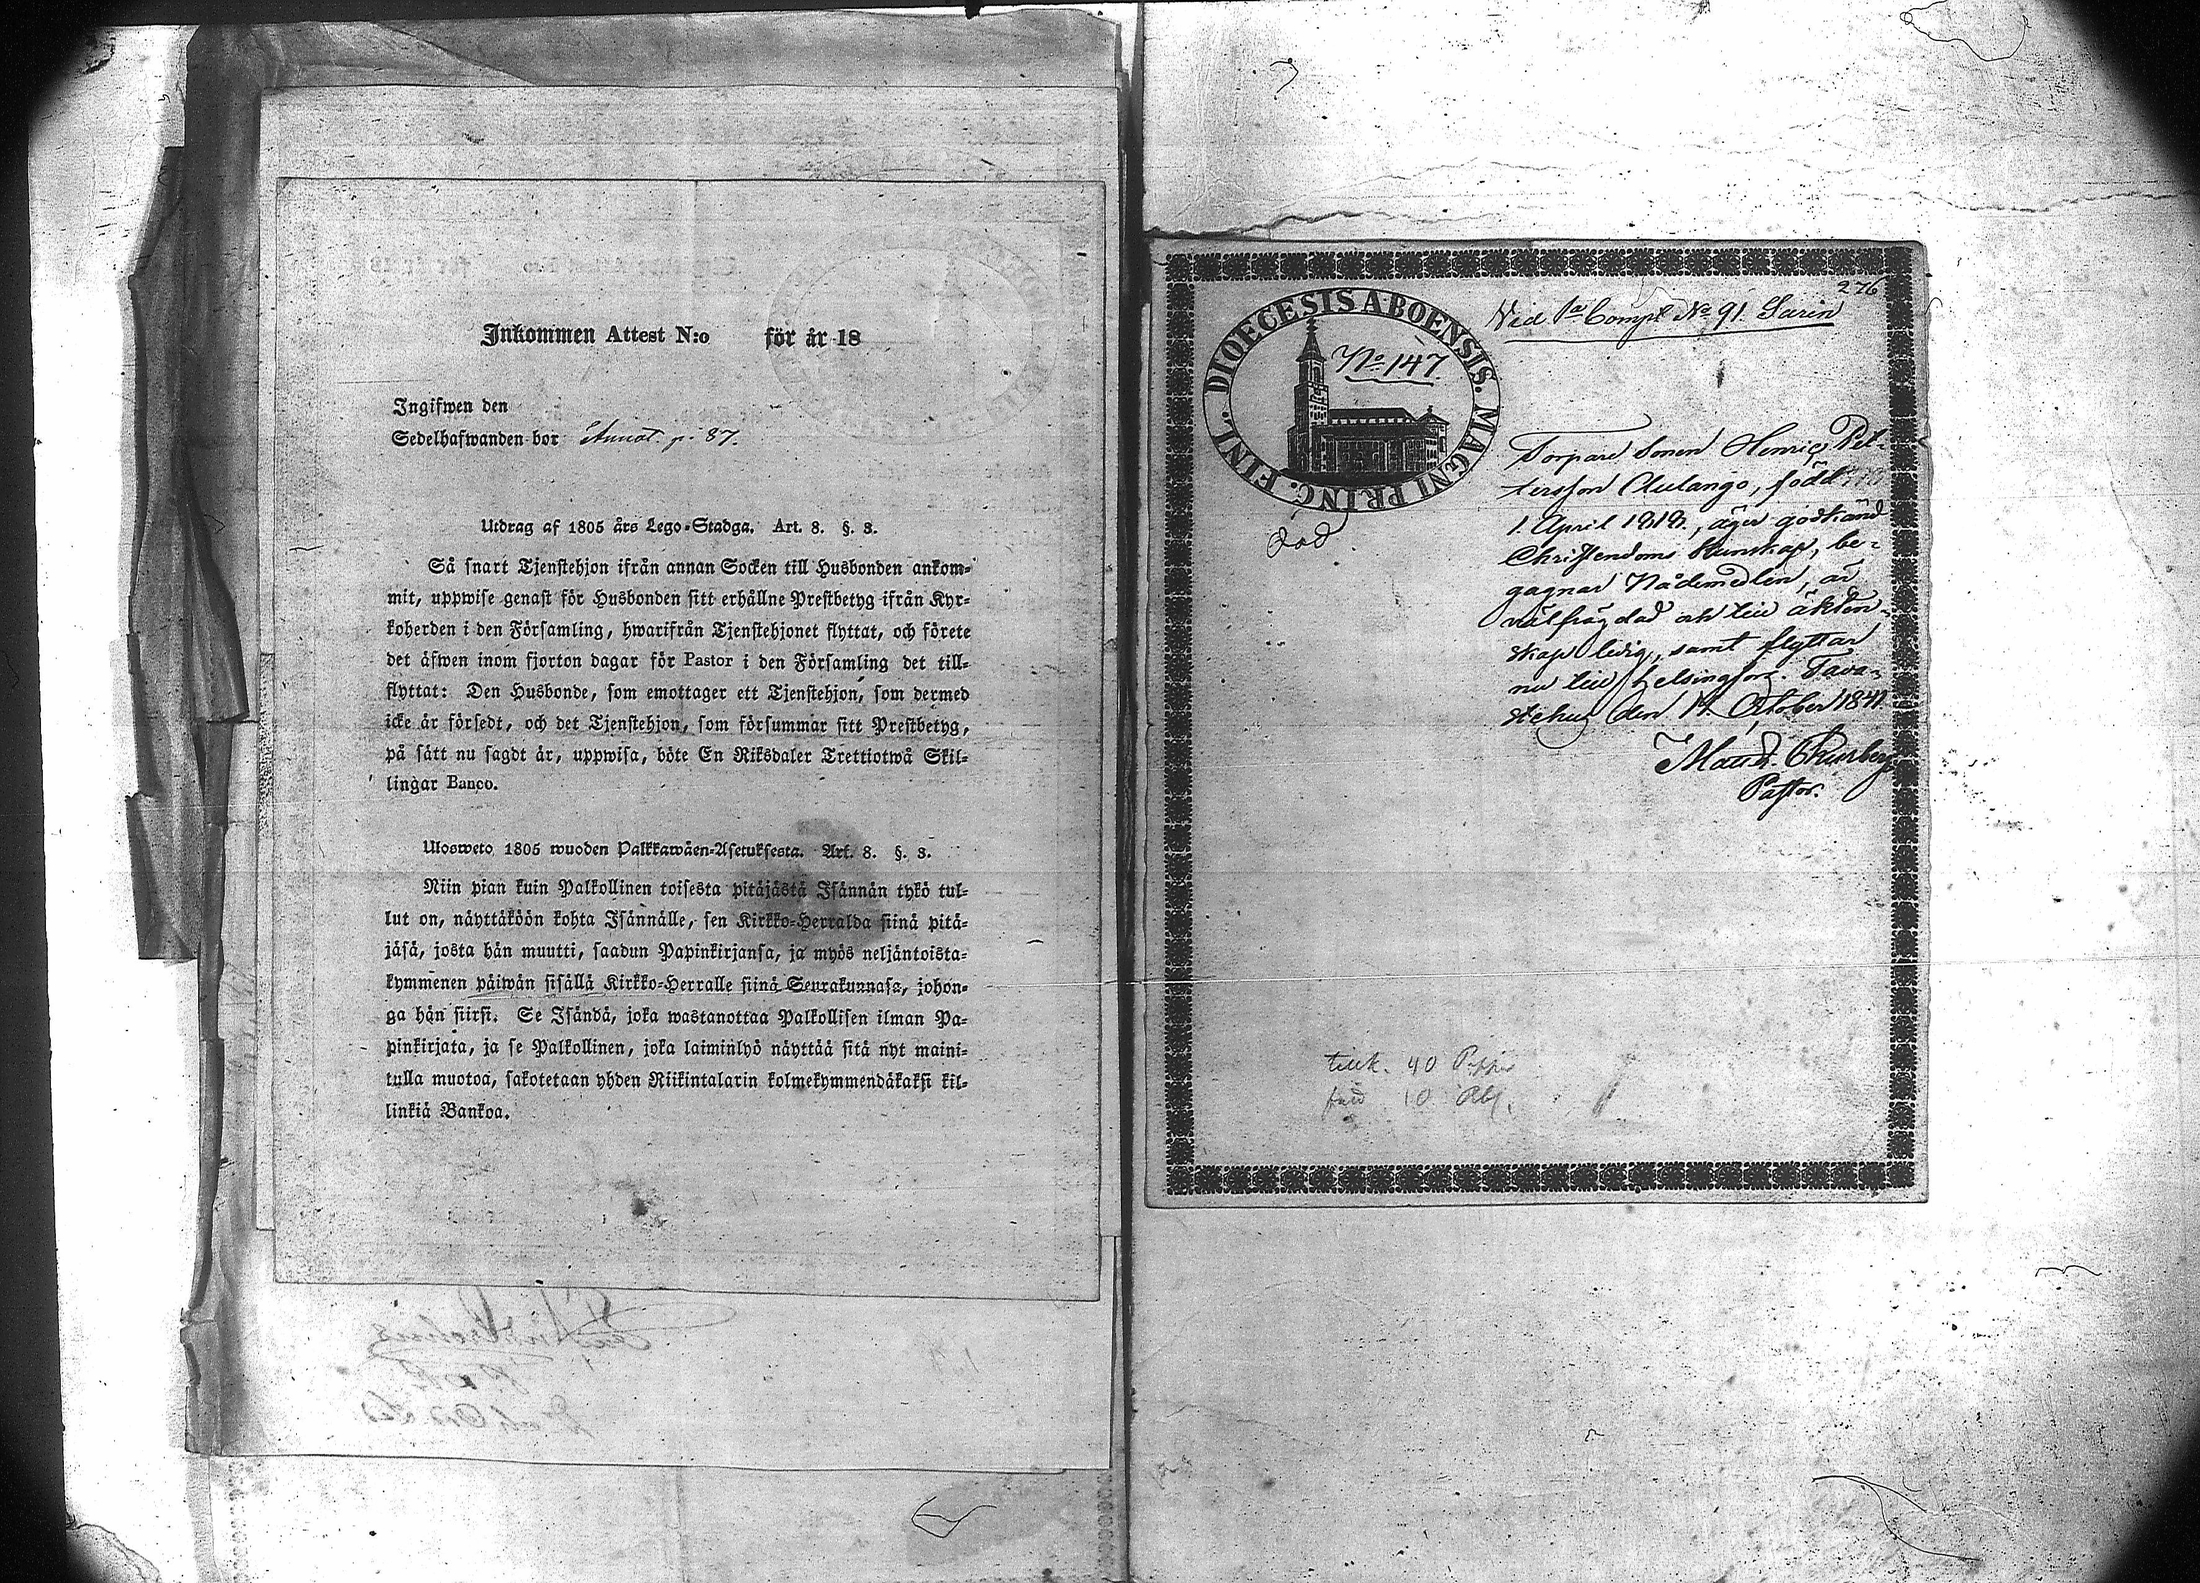 Inkommen Attest N:o för år 18
Ingifwen den
Sedelhafwanden bor Annot. p. 87.
Utdrag af 1805 års Lego-Stadga. Art. 8. §. 3.
Så snart Tjenstehjon ifrån annan Socken till Husbonden ankom-
mit, uppwise genast för Husbonden sitt erhållne Prestbetyg ifrån Kyr-
koherden i den Församling, hwarifrån Tjenstehjonet flyttat, och förete
det äfwen inom fjorton dagar för Pastor i den Församling det till-
flyttat: Den Husbonde, som emottager ett Tjenstehjon, som dermed
icke är försedt, och det Tjenstehjon, som försummar sitt Prestbetyg,
på sätt nu sagdt är, uppwisa, böte En Riksdaler Trettiotwå Skil-
lingar Banco.
Ulosweto 1805 wuoden Palkkawäen-Asetuksesta. Art. 8. §. 3.
Niin pian kuin Palkollinen toisesta pitäjästä Isännän tykö tul-
lut on, näyttäköön kohta Isännälle, sen Kirkko-Herralda siinä pitä-
jäsä, josta hän muutti, saadun Papinkirjansa, ja myös neljäntoista-
kymmenen päiwän sisällä Kirkko-Herralle siinä Seurakunnasa, johon-
ga hän siirsi. Se Isändä, joka wastanottaa Palkollisen ilman Pa-
pinkirjata, ja se Palkollinen, joka laiminlyö näyttää sitä nyt maini-
tulla muotoa, sakotetaan yhden Riikintalarin kolmekymmendäkaksi kil-
linkiä Bankoa.
276
Vid 1a Comp. No 91. Sarin
DIOECESIS ABOENSIS. MAGNI PRINC. FINL.
No 147
död.
Torpare sonen Henric Pet-
tersson Aulango, född
1. April 1818, äger godkänd
Christendoms Kunskap, be-
gagnar Nådemedlen, är
välfrägdad och till äkten-
skap ledig, samt flyttar
nu till Helsingfors. Tava-
stehus den 14. October 1841.
Pastor.
40
10